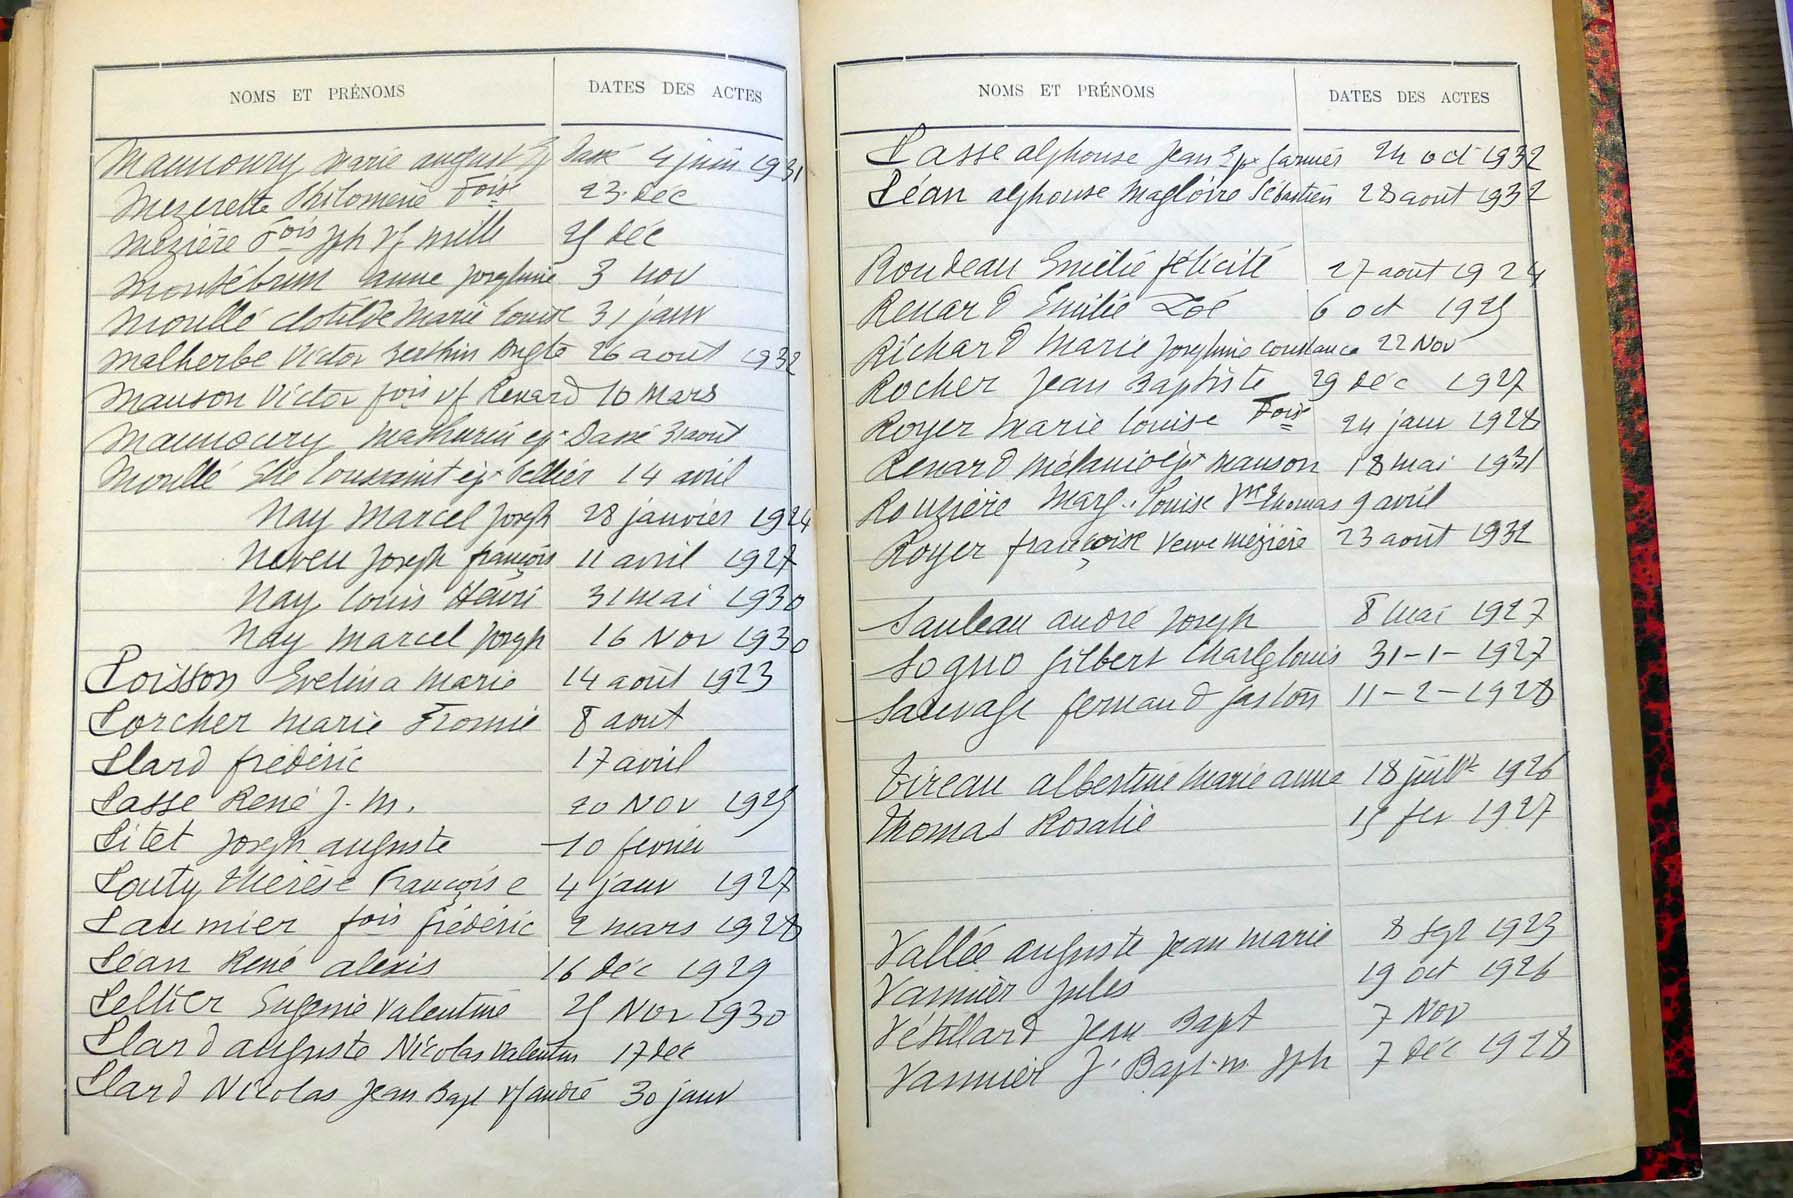 NOMS ET PRÉNOMS DATES DES ACTES
Maunoury Marie august Ep Dassé 4 juin 1931
Mezerette Philomene Foise 23 Dec
Mézière Fois Jph vf mille 25 Déc
Montébrun anne Josephine 3 nov
Moullé Clotilde Marie Louise 31 janv
Malherbe Victor Augte 26 aout 1932
Manson Victor fois vf Renard 10 Mars
Maunoury Mathurin ep Dassé 31 août
Moullé Elie Toussaint ép. Pellier 14 avril
Nay Marcel Joseph 28 janvier 1924
Neveu Joseph françois 11 avril 1927
Nay Louis Henri 31 mai 1930
Nay Marcel Joseph 16 Nov 1930
Poisson Evelina Marie 14 août 1923
Porcher Marie 8 aout
Plard frédéric 17 avril
Passe René J. M. 20 Nov 1925
Pitet Joseph auguste 10 fevrier
Pouty Thérèse Françoise 4 janv 1927
Paumier fois frédéric 2 mars 1928
Péan René alexis 16 Déc 1929
Peltier Eugenie Valentine 25 Nov 1930
Plard auguste Nicolas Valentin 17 Dec
Plard Nicolas Jean Bapt vf andré 30 janv
NOMS ET PRÉNOMS DATES DES ACTES
Passe alphonse Jean Epx 24 oct 1932
Péan alphonse Magloire Sébastien 28 aout 1932
Rondeau Emilie félicité 27 août 1924
Renard Emilie Zoé 6 oct 1925
Richard Marie Josephine Constance 22 Nov
Rocher Jean Baptiste 29 Déc 1927
Royer Marie Louise Foise 24 janv 1928
Renard Mélanie épx Manson 18 mai 1931
Rouzière Marg. Louise Vve Thomas 9 avril
Royer françoise veuve Mézière 23 août 1932
Sauleau andré Joseph 8 mai 1927
Sogno Gilbert Charles Louis 31-1-1927
Sauvage fernand gaston 11-2-1928
Tireau albertine Marie anne 18 juillt 1926
Thomas Rosalie 15 fev 1927
Vallée auguste Jean Marie 8 sept 1923
Vannier Jules 19 oct 1926
Vétillard Jean Bapt 7 Nov
Vannier J. Bapt. m. Jph 7 Déc 1928